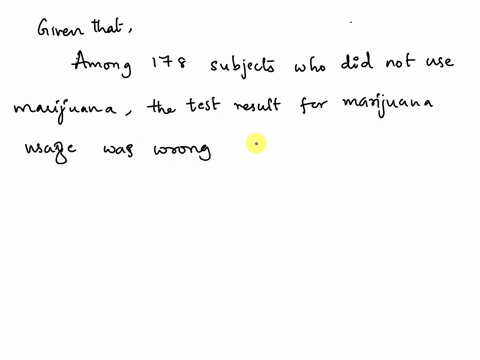 Given that,
Among 178 subjects who did not use
marijuana, the test result for marijuana
usage was wrong